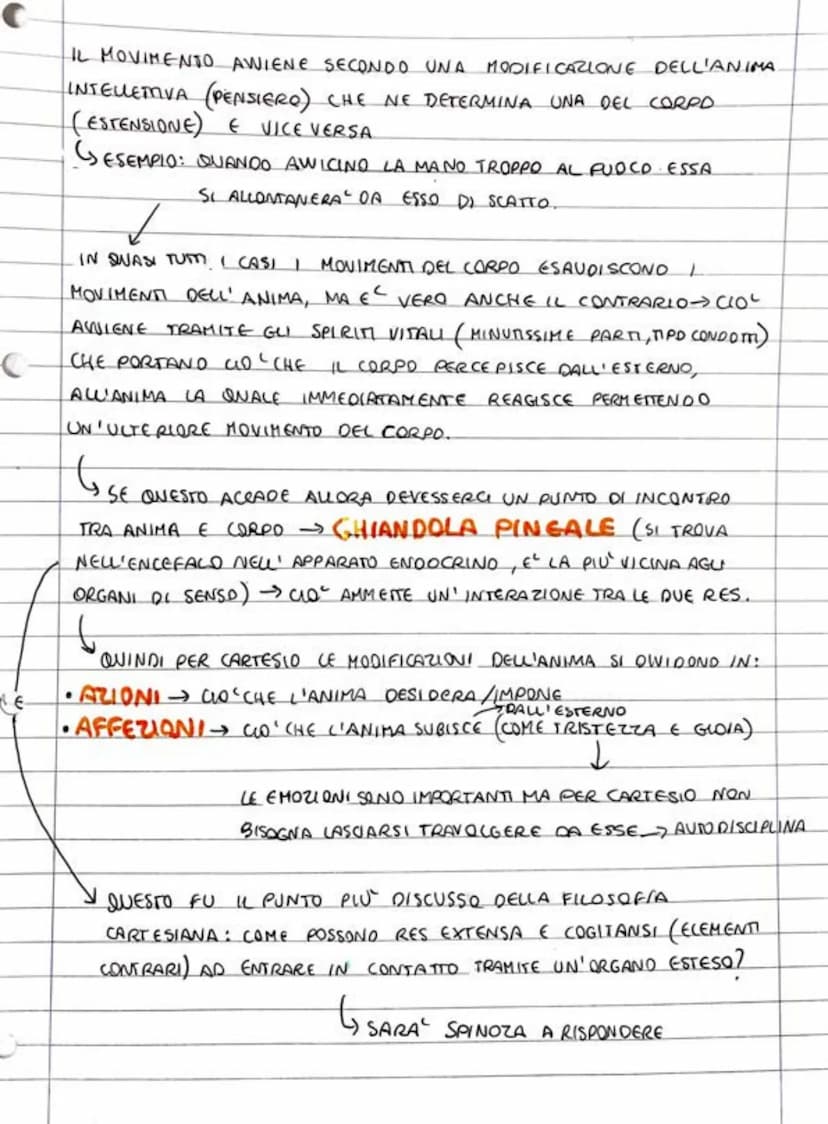 IL MOVIMENTO AVVIENE SECONDO UNA MODIFICAZIONE DELL'ANIMA
INTELLETTIVA (PENSIERO) CHE NE DETERMINA UNA DEL CORPO
(ESTENSIONE) E VICEVERSA
↳ ESEMPIO: QUANDO AVVICINO LA MANO TROPPO AL FUOCO ESSA
SI ALLONTANERA' DA ESSO DI SCATTO.
IN QUASI TUTTI I CASI I MOVIMENTI DEL CORPO ESAUDISCONO I
MOVIMENTI DELL'ANIMA, MA E' VERO ANCHE IL CONTRARIO → CIO'
AVVIENE TRAMITE GLI SPIRITI VITALI (MINUTISSIME PARTI, TIPO CONDOTTI)
CHE PORTANO CIO' CHE IL CORPO PERCEPISCE DALL'ESTERNO,
ALL'ANIMA LA QUALE IMMEDIATAMENTE REAGISCE PERMETTENDO
UN'ULTERIORE MOVIMENTO DEL CORPO.
↳ SE QUESTO ACCADE ALLORA DEVESSERCI UN PUNTO DI INCONTRO
TRA ANIMA E CORPO → GHIANDOLA PINEALE (SI TROVA
NELL'ENCEFALO NELL'APPARATO ENDOCRINO, E' LA PIU' VICINA AGLI
ORGANI DI SENSO) → CIO' AMMETTE UN'INTERAZIONE TRA LE DUE RES.
↳ QUINDI PER CARTESIO LE MODIFICAZIONI DELL'ANIMA SI DIVIDONO IN:
• AZIONI → CIO' CHE L'ANIMA DESIDERA/IMPONE
→ DALL'ESTERNO
• AFFEZIONI → CIO' CHE L'ANIMA SUBISCE (COME TRISTEZZA E GIOIA)
↓
LE EMOZIONI SONO IMPORTANTI MA PER CARTESIO NON
BISOGNA LASCIARSI TRAVOLGERE DA ESSE → AUTODISCIPLINA
QUESTO FU IL PUNTO PIU' DISCUSSO DELLA FILOSOFIA
CARTESIANA: COME POSSONO RES EXTENSA E COGITANSI (ELEMENTI
CONTRARI) AD ENTRARE IN CONTATTO TRAMITE UN'ORGANO ESTESO?
↳ SARA' SPINOZA A RISPONDERE